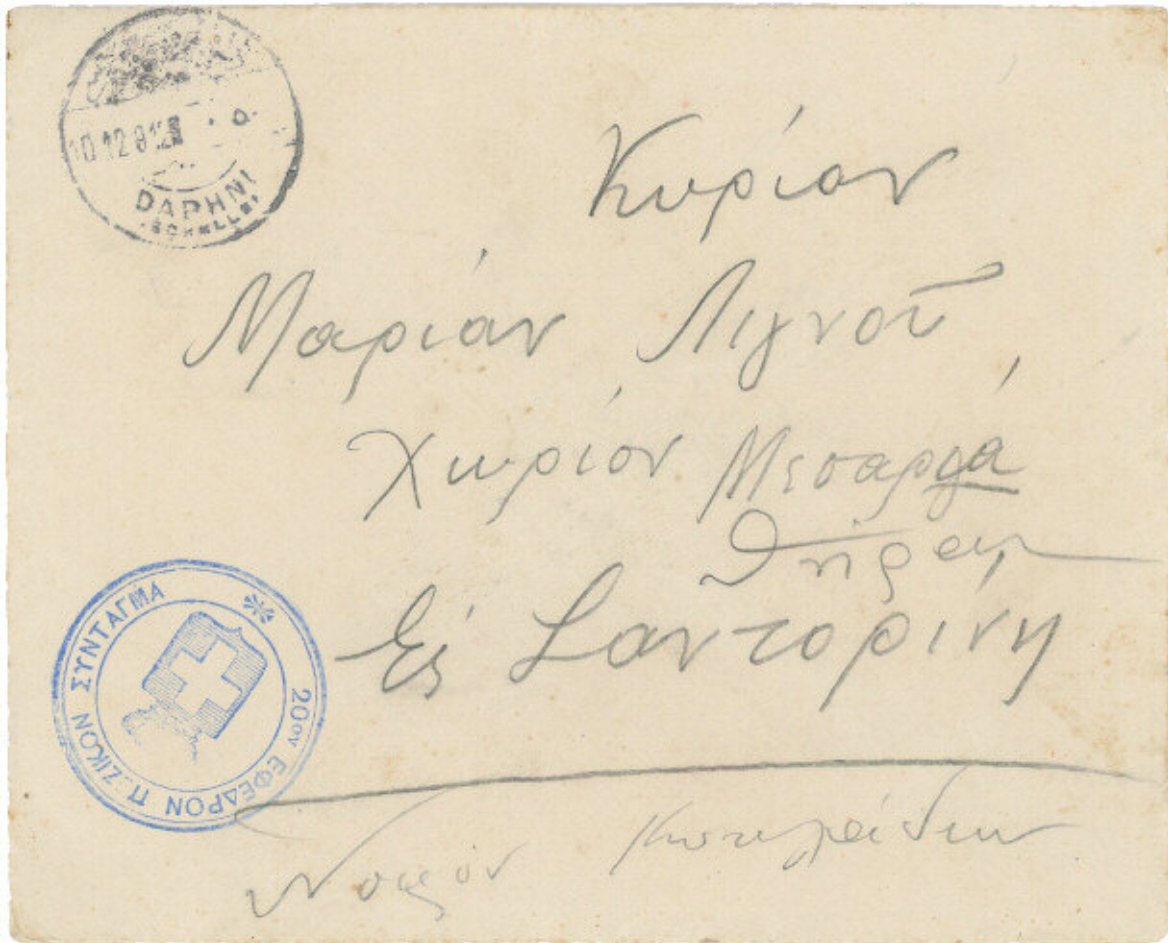 10 12 912
DAPHNI
Κυρίαν
Μαριάν Λιγνοῦ
Χωρίον Μεσαριά
Θήρας
Εἰς Σαντορίνη
20ον ΕΦΕΔΡΟΝ Π.ΖΙΚΟΝ ΣΥΝΤΑΓΜΑ
Νομὸν Κυκλάδων